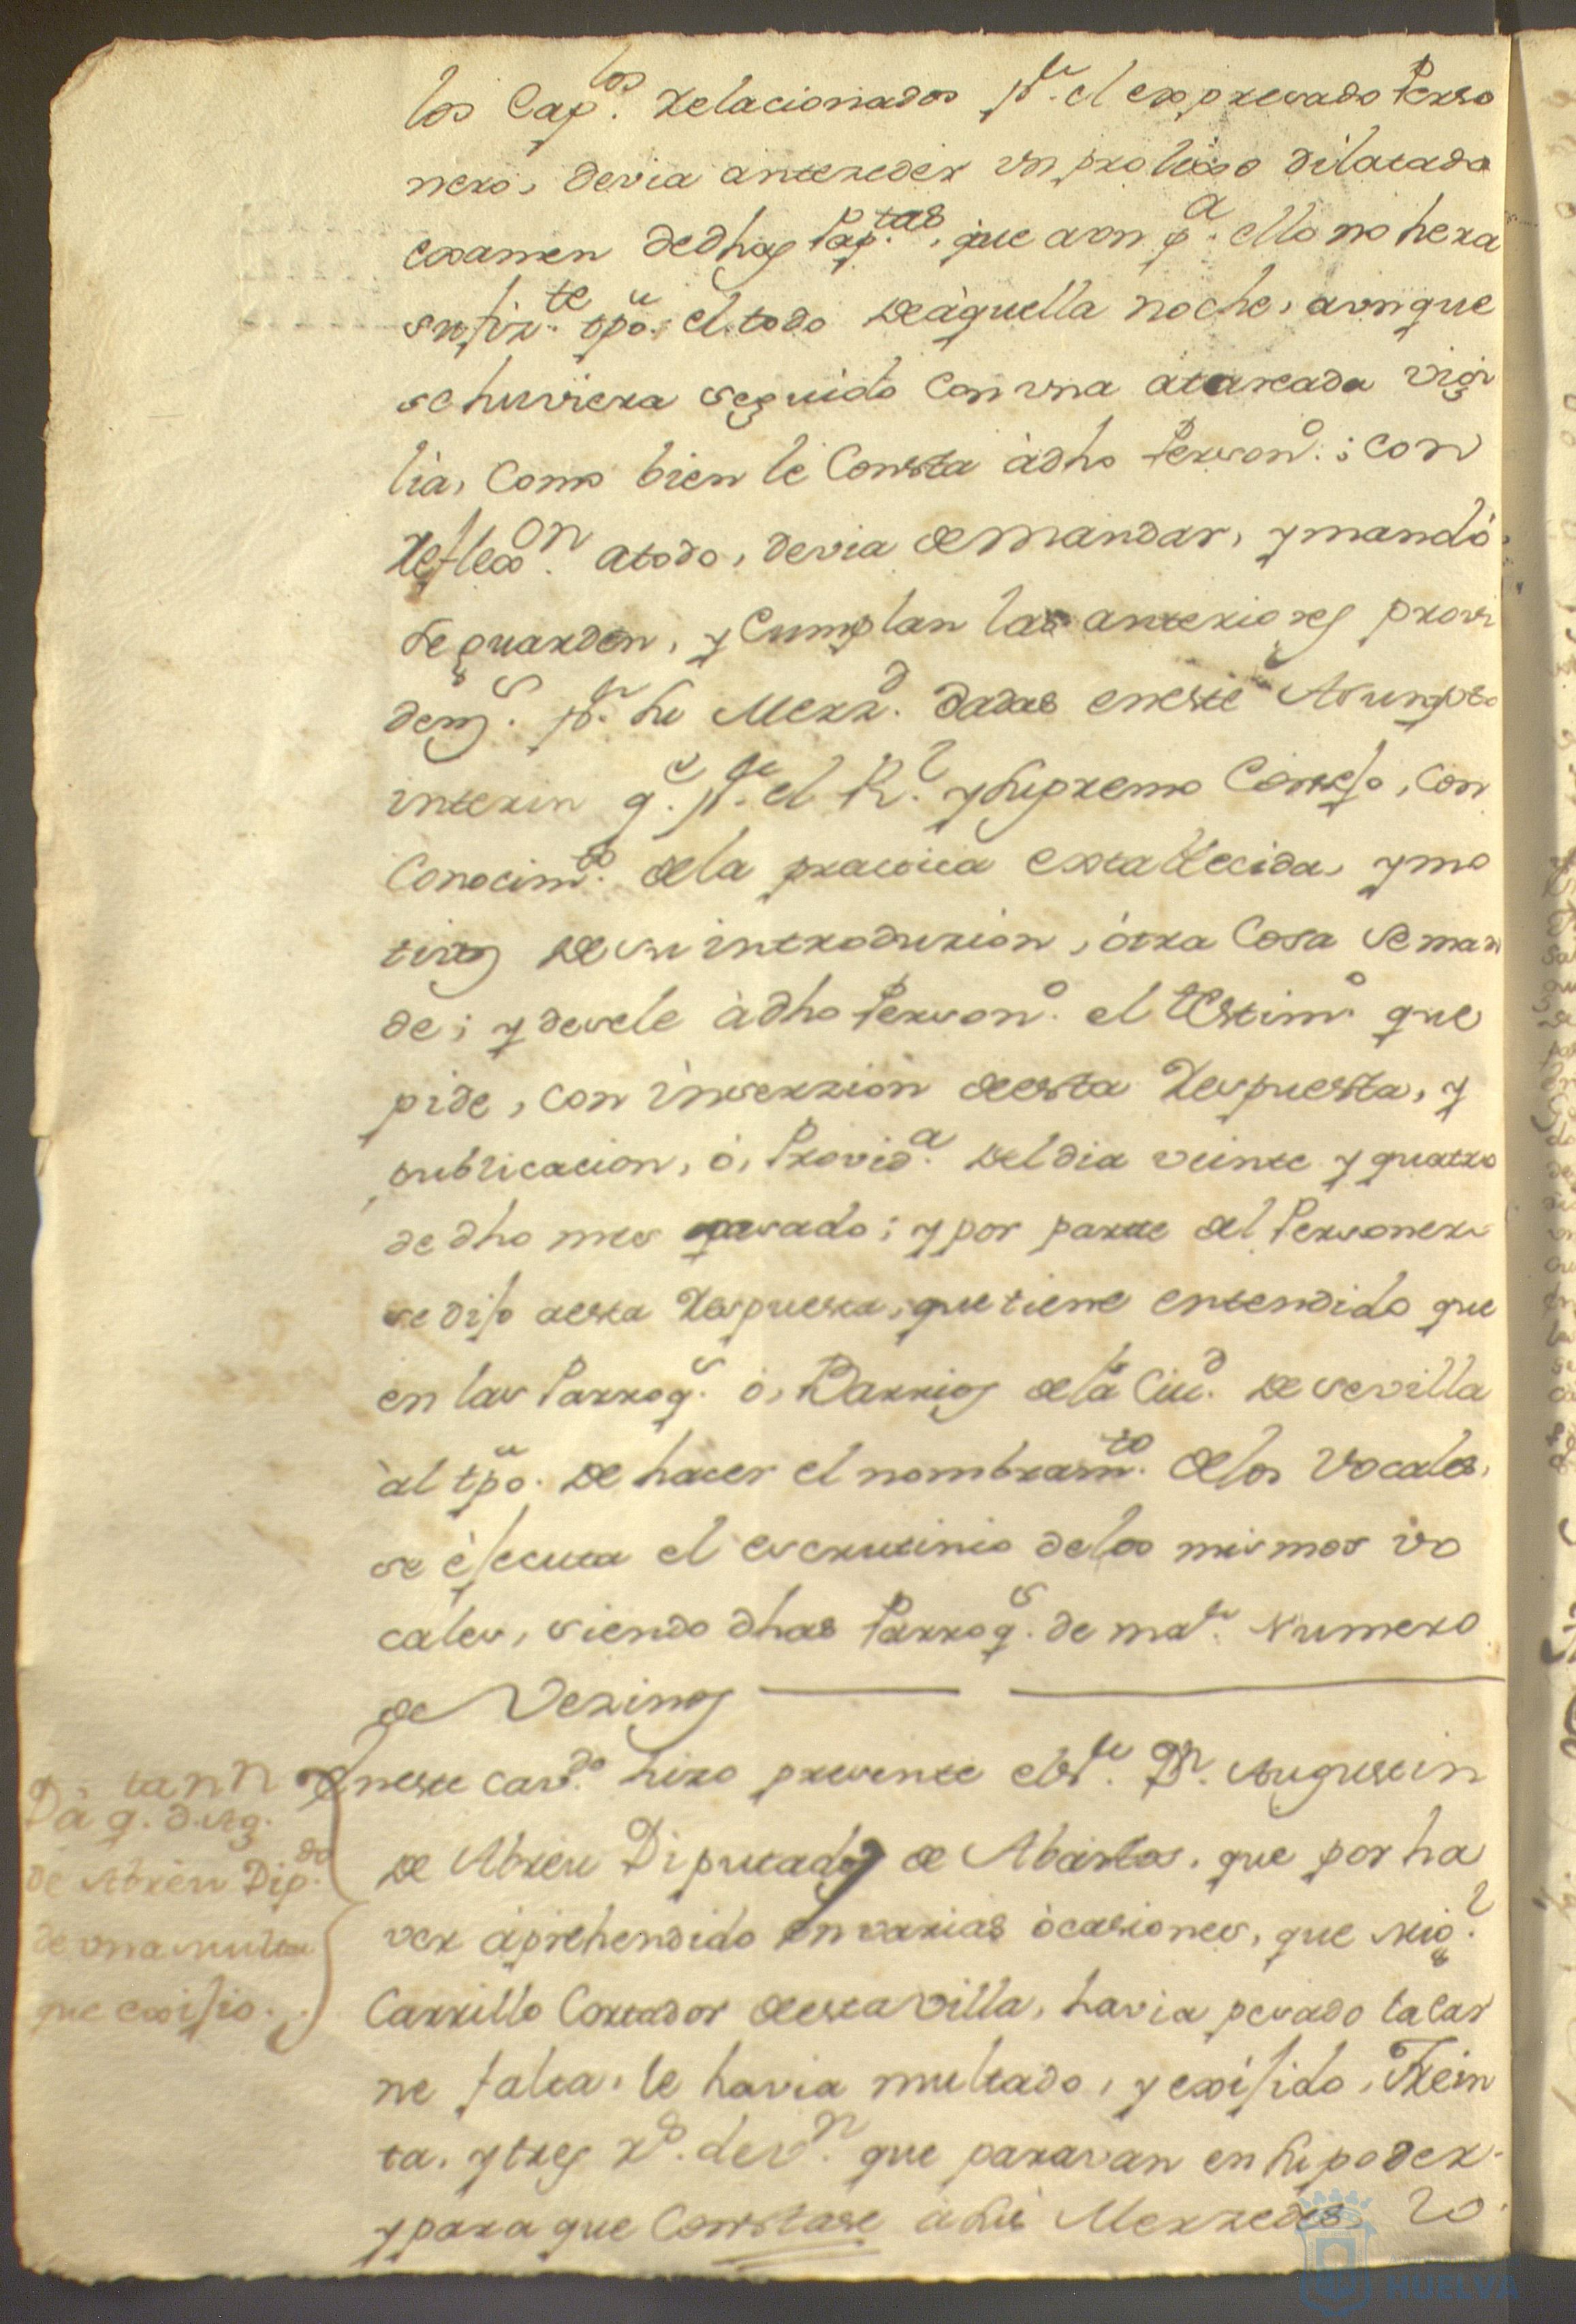 los Cap.los Relacionados p.r el expresado Perso
nero, devia anteceder un prolixo dilatado
examen de dhas Pap.tas, que aun p.a ello no hera
sufiz.te tpo. el todo de aquella noche, aunque
se huviera seguido con una atareada vigi
lia, Como bien le Consta à dho Person.o; con
Reflex.on a todo, devia de mandar, y mandò
se guarden, y Cumplan las anteriores provi
denz.s p.r su Merz.d dadas en este Asumpto
interin q.e p.r el R.l y Supremo Consejo, con
Conocim.to de la practica establecida, y mo
tivos de su introduzion, òtra Cosa se man
de; y desele à dho Person.o el testim.o que
pide, con inserzion de esta Respuesta, y
publicacion, ò, Provid.a del dia veinte y quatro
de dho mes pasado; y por parte del Personero
se dijo a esta Respuesta, que tiene entendido que
en las Parroq.s ò, Barrios de la Ciu.d de sevilla
àl tpo. de hacer el nombram.to de los Vocales,
se èjecuta el escrutinio de los mismos vo
cales, siendo dhas Parroq.s de ma.r Numero
de Vezinos
En este cav.do hizo presente el S.r D.n Augustin
de Abreu Diputado de Abastos, que por ha
ver àprehendido en varias òcasiones, que Mig.l
Carrillo Cortador de esta villa, havia pesado la car
ne falta, le havia multado, y exijido, Trein
ta, y tres r.s de v.n que paravan en su poder
y para que Constase à sus Merzedes, lo
D. Ag.
de Abreu Dip.do
de una multa
que exijio.
HUELVA